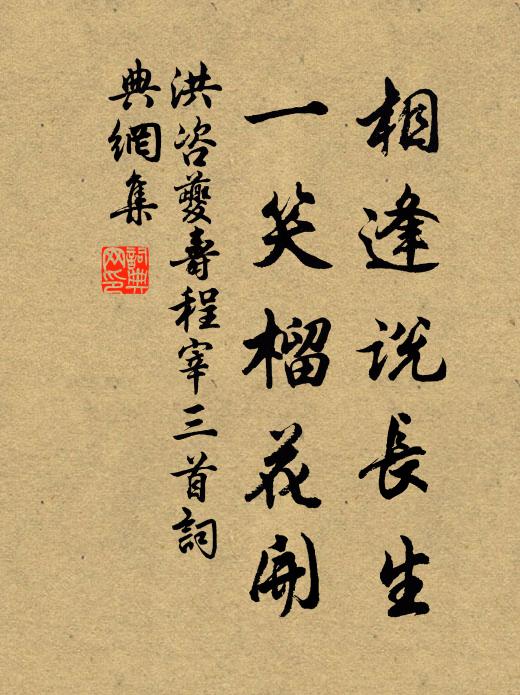 相逢説長生
一笑榴花開
洪咨夔壽程宰三首詞
典網集
詞典
网印